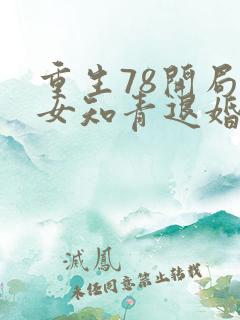 重生78开局
女知青退婚
滅鳳
未经同意禁止转载